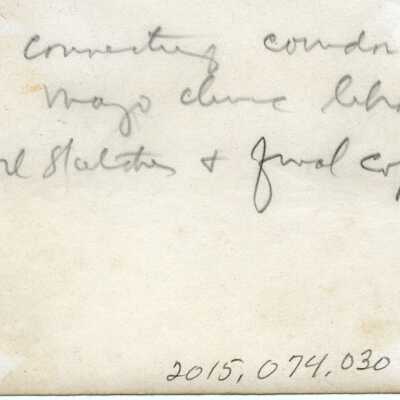 connecting corridor
Mayo clinic libr
sketches & final cop
2015.074.030